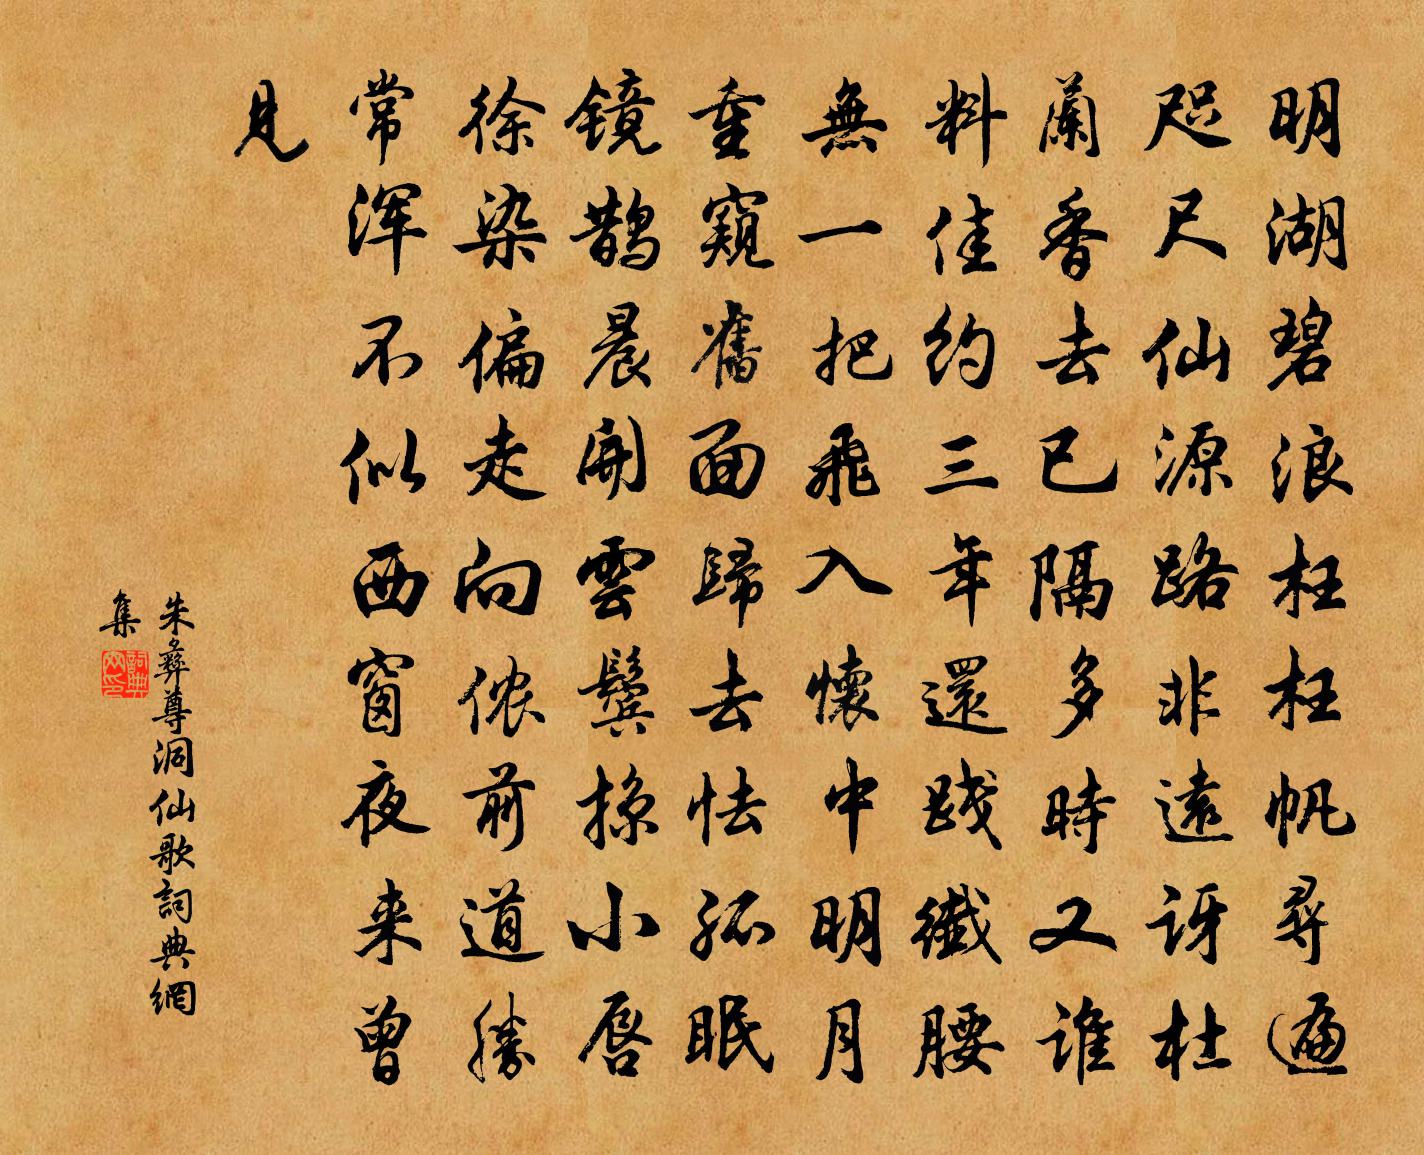 明湖碧浪枉枉帆尋遍
咫尺仙源路非遠訝杜
蘭香去已隔多時又誰
料佳约三年還踐纖腰
無一把飛入懷中明月
重窺舊面歸去怯孤眠
镜鵲晨開雲鬓掠小唇
徐染偏走向侬前道勝
常浑不似西窗夜来曾
見
朱彝尊洞仙歌詞典網
集
詞典网印